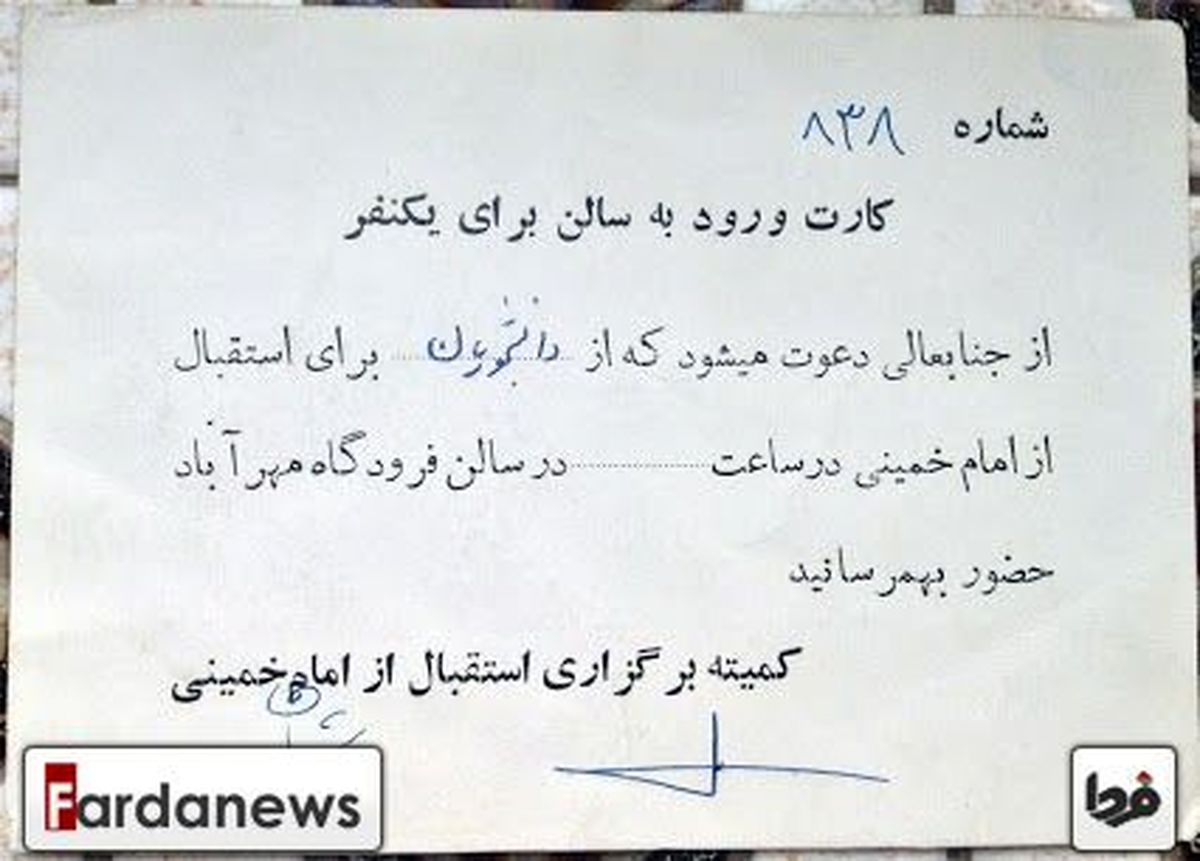 شماره ۸۳۸
کارت ورود به سالن برای یکنفر
از جنابعالی دعوت میشود که از دانشجویان برای استقبال
از امام خمینی در ساعت ............ در سالن فرودگاه مهرآباد
حضور بهمرسانید
کمیته برگزاری استقبال از امام خمینی
Fardanews
فردا